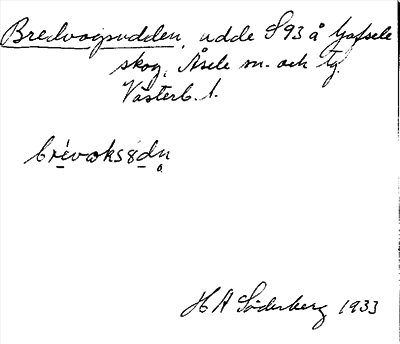 Bredvagsudden, udde S93 å Gafsele
skog, Åsele sn. och tg.
Västerb. l.
H A Söderberg 1933